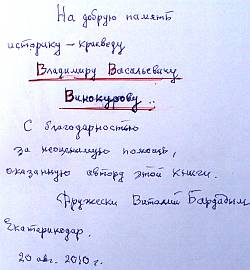 На добрую память
историку – краеведу
Владимиру Васильевичу
Винокурову..
С благодарностью
за неоценимую помощь,
оказанную автору этой книги.
Дружески Виталий Бардадым
Екатеринодар.
20 авг. 2010 г.